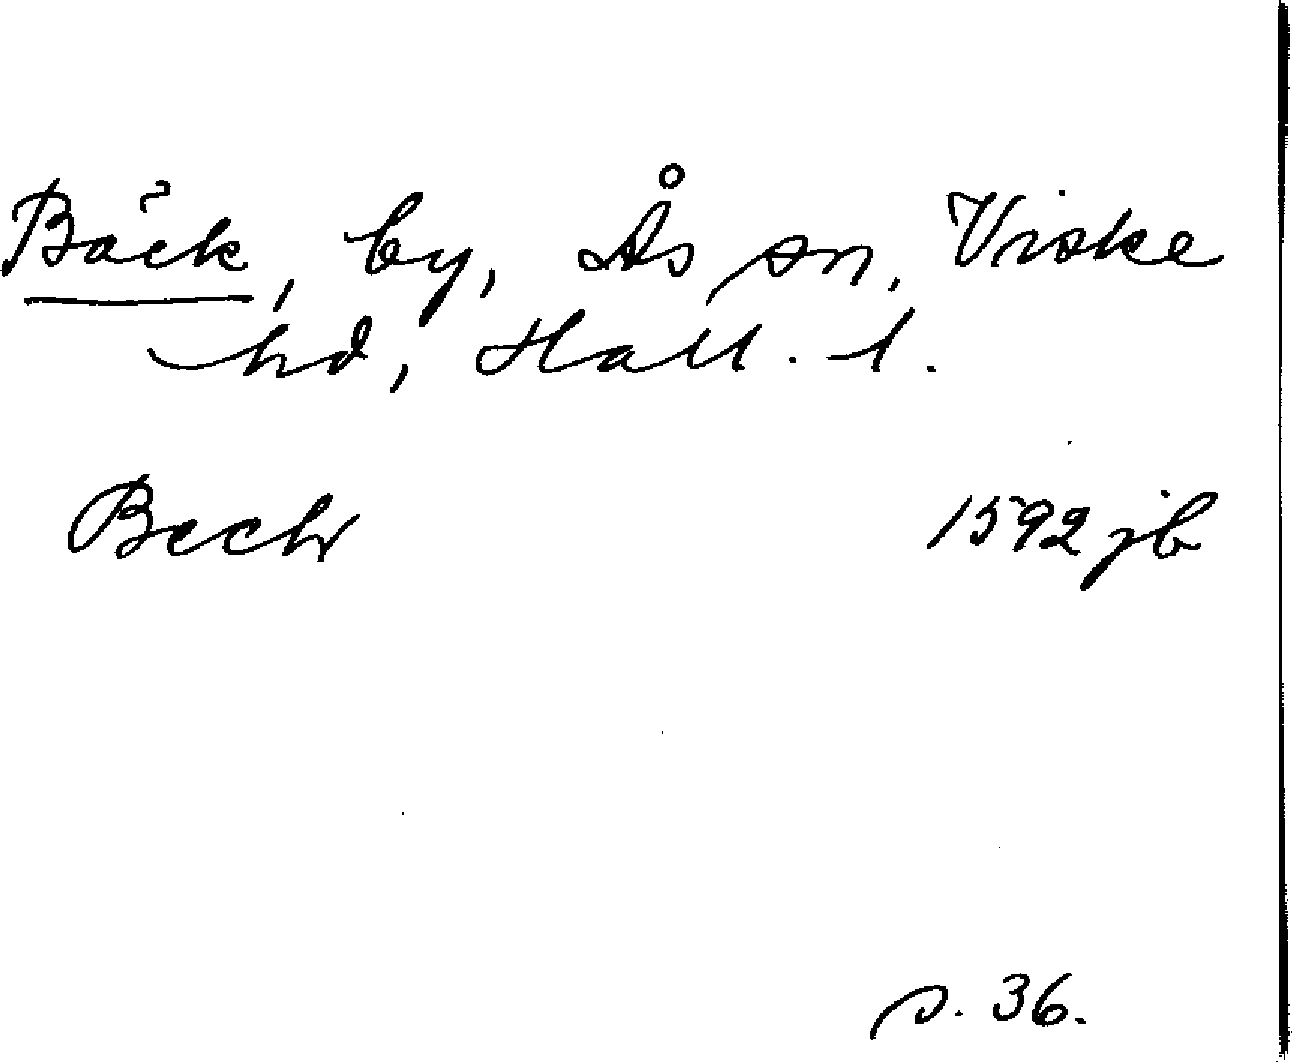 Bäck, by, Ås sn, Viske
hd, Hall. l.
Bech 1592 jb
s. 36.